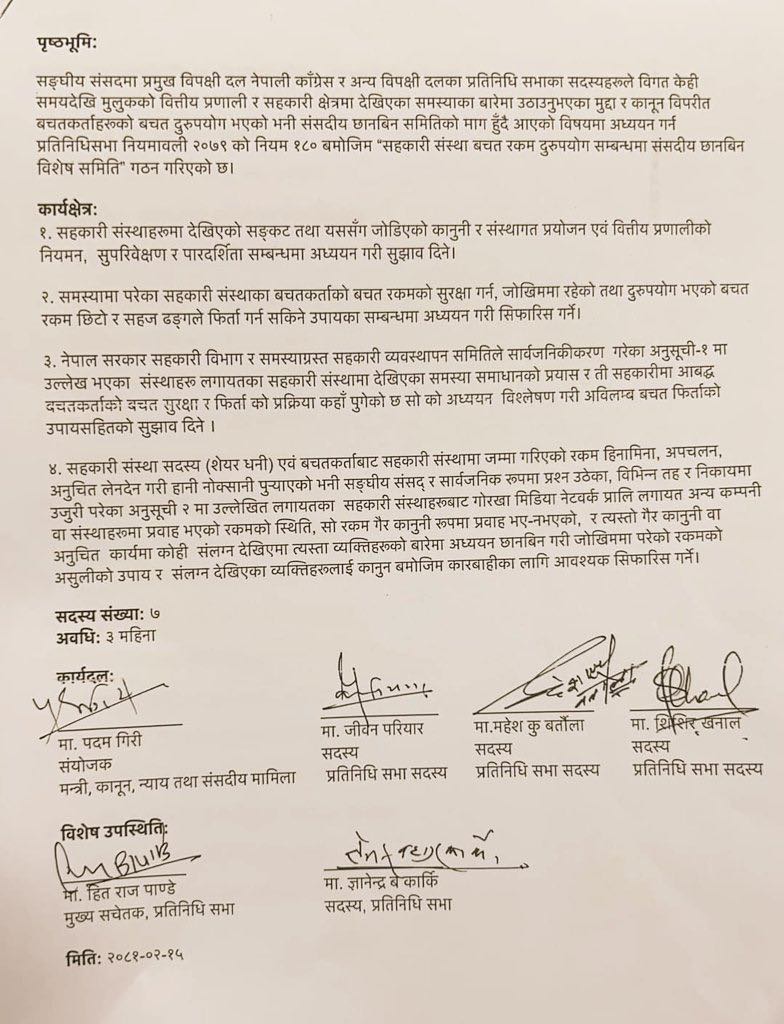 पृष्ठभूमि:
सङ्घीय संसदमा प्रमुख विपक्षी दल नेपाली काँग्रेस र अन्य विपक्षी दलका प्रतिनिधि सभाका सदस्यहरूले विगत केही
समयदेखि मुलुकको वित्तीय प्रणाली र सहकारी क्षेत्रमा देखिएका समस्याका बारेमा उठाउनुभएका मुद्दा र कानून विपरीत
बचतकर्ताहरूको बचत दुरुपयोग भएको भनी संसदीय छानबिन समितिको माग हुँदै आएको विषयमा अध्ययन गर्न
प्रतिनिधिसभा नियमावली २०७९ को नियम १८० बमोजिम “सहकारी संस्था बचत रकम दुरुपयोग सम्बन्धमा संसदीय छानबिन
विशेष समिति” गठन गरिएको छ।
कार्यक्षेत्र:
१. सहकारी संस्थाहरूमा देखिएको सङ्कट तथा यससँग जोडिएको कानुनी र संस्थागत प्रयोजन एवं वित्तीय प्रणालीको
नियमन, सुपरिवेक्षण र पारदर्शिता सम्बन्धमा अध्ययन गरी सुझाव दिने।
२. समस्यामा परेका सहकारी संस्थाका बचतकर्ताको बचत रकमको सुरक्षा गर्न, जोखिममा रहेको तथा दुरुपयोग भएको बचत
रकम छिटो र सहज ढङ्गले फिर्ता गर्न सकिने उपायका सम्बन्धमा अध्ययन गरी सिफारिस गर्ने।
३. नेपाल सरकार सहकारी विभाग र समस्याग्रस्त सहकारी व्यवस्थापन समितिले सार्वजनिकीकरण गरेका अनुसूची-१ मा
उल्लेख भएका संस्थाहरू लगायतका सहकारी संस्थामा देखिएका समस्या समाधानको प्रयास र ती सहकारीमा आबद्ध
बचतकर्ताको बचत सुरक्षा र फिर्ता को प्रक्रिया कहाँ पुगेको छ सो को अध्ययन विश्लेषण गरी अविलम्ब बचत फिर्ताको
उपायसहितको सुझाव दिने ।
४. सहकारी संस्था सदस्य (शेयर धनी) एवं बचतकर्ताबाट सहकारी संस्थामा जम्मा गरिएको रकम हिनामिना, अपचलन,
अनुचित लेनदेन गरी हानी नोक्सानी पुऱ्याएको भनी सङ्घीय संसद् र सार्वजनिक रूपमा प्रश्न उठेका, विभिन्न तह र निकायमा
उजुरी परेका अनुसूची २ मा उल्लेखित लगायतका सहकारी संस्थाहरूबाट गोरखा मिडिया नेटवर्क प्रालि लगायत अन्य कम्पनी
वा संस्थाहरूमा प्रवाह भएको रकमको स्थिति, सो रकम गैर कानुनी रूपमा प्रवाह भए-नभएको, र त्यस्तो गैर कानुनी वा
अनुचित कार्यमा कोही संलग्न देखिएमा त्यस्ता व्यक्तिहरूको बारेमा अध्ययन छानबिन गरी जोखिममा परेको रकमको
असुलीको उपाय र संलग्न देखिएका व्यक्तिहरूलाई कानुन बमोजिम कारबाहीका लागि आवश्यक सिफारिस गर्ने।
सदस्य संख्या: ७
अवधि: ३ महिना
कार्यदल:
मा. पदम गिरी
संयोजक
मन्त्री, कानून, न्याय तथा संसदीय मामिला
मा. जीवन परियार
सदस्य
प्रतिनिधि सभा सदस्य
मा.महेश कु बर्तौला
सदस्य
प्रतिनिधि सभा सदस्य
मा. शिशिर खनाल
सदस्य
प्रतिनिधि सभा सदस्य
विशेष उपस्थिति:
मा. हित राज पाण्डे
मुख्य सचेतक, प्रतिनिधि सभा
मा. ज्ञानेन्द्र ब कार्कि
सदस्य, प्रतिनिधि सभा
मिति: २०८१-०२-१५